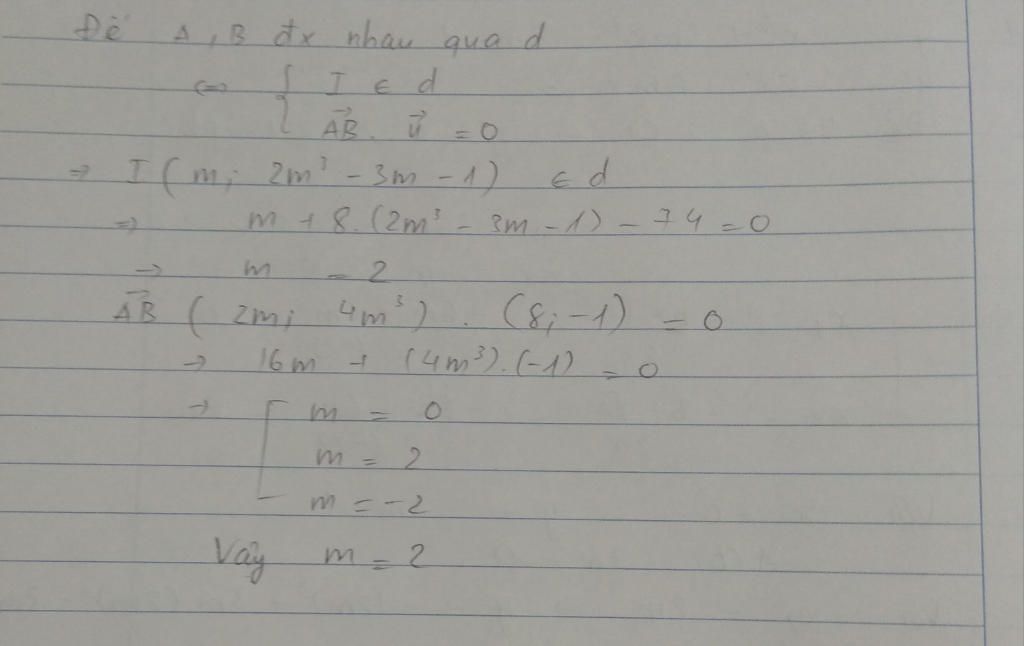 Để A, B đx nhau qua d
⇔ { I ∈ d
AB⃗. u⃗ = 0
⇒ I(m; 2m³ - 3m - 1) ∈ d
⇒ m + 8.(2m³ - 3m - 1) - 74 = 0
→ m = 2
AB⃗ (2m; 4m³) . (8; -1) = 0
→ 16m + (4m³).(-1) = 0
→ [ m = 0
m = 2
m = -2
Vậy m = 2